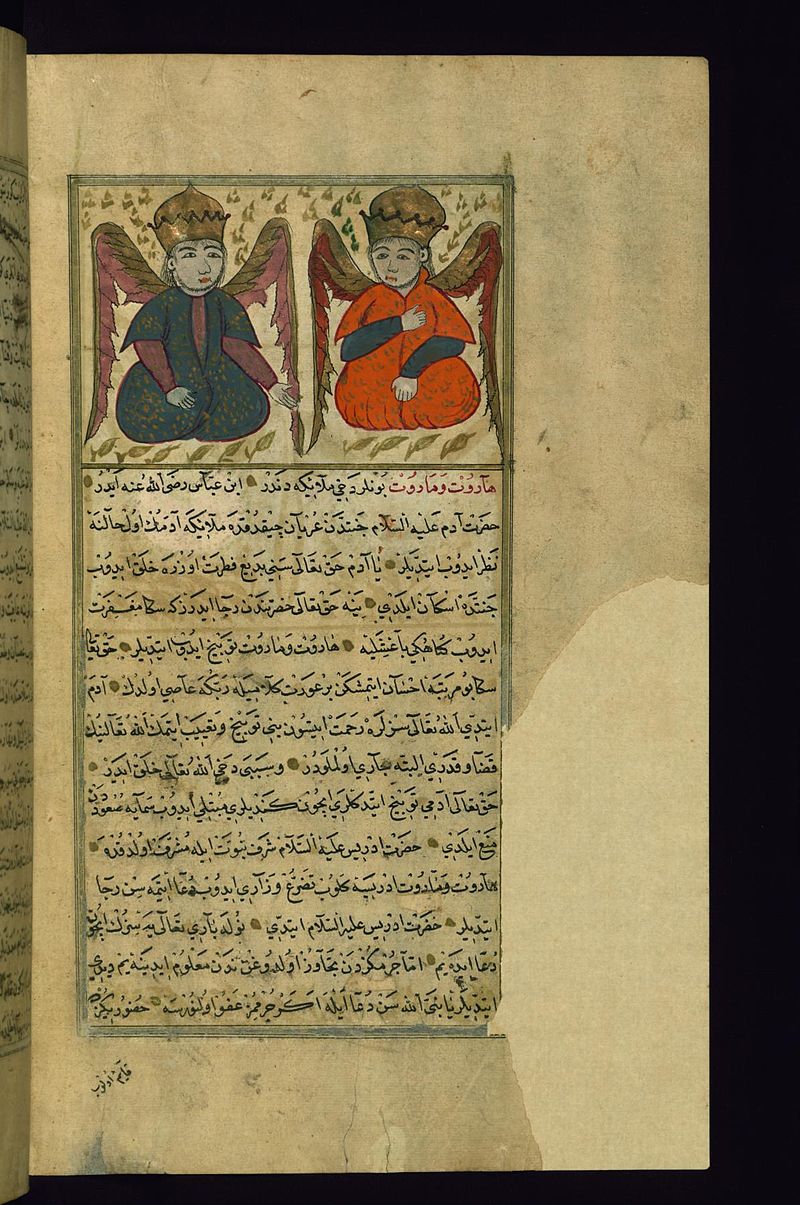 هاروت وماروت بونلر دخي ملائكه دندر ابن عباس رضي الله عنه ايدر
حضرت آدم عليه السلام جنتدن عريان چيقدقده ملائكه آدمك اول حالنه
نظر ايدوب ايتديلر يا آدم حق تعالى سني يديغ فطرت اوزره خلق ايدوب
جنتده اسكان ايلدي ينه حق تعالى حضرتندن رجا ايدرز كه سكا مغفرت
ايدوب كناهكي باغشليه هاروت وماروت توبيخ ايدوب ايتديلر حق تعالى
سكا بو مرتبه احسان ايتمشكن بر عورت كلاميله ربكه عاصي اولدك آدم
ايتدي الله تعالى سزلره رحمت ايتسون بني توبيخ وتعييب ايتمك الله تعالينك
قضا وقدري البته جاري اولملودر وسببي دخي الله تعالى خلق ايدر
حق تعالى آدمي توبيخ ايتدكلري ايچون كنديلري مبتلى ايدوب سمايه صعوددن
منع ايلدي حضرت ادريس عليه السلام شرف نبوت ايله مشرف اولدقده
هاروت وماروت ادريسه كلوب تضرع وزاري ايدوب دعا ايتمه سن رجا
ايتديلر حضرت ادريس عليه السلام ايتدي نوله باري تعالى يه سزك ايچون
دعا ايده يم اما جرمكزدن تجاوز اولدوغن ندن معلوم ايدينه يم ديدي
ايتديلر يا نبي الله سن دعا ايله اكر جرممز عفو اولنورسه حضوريكزه